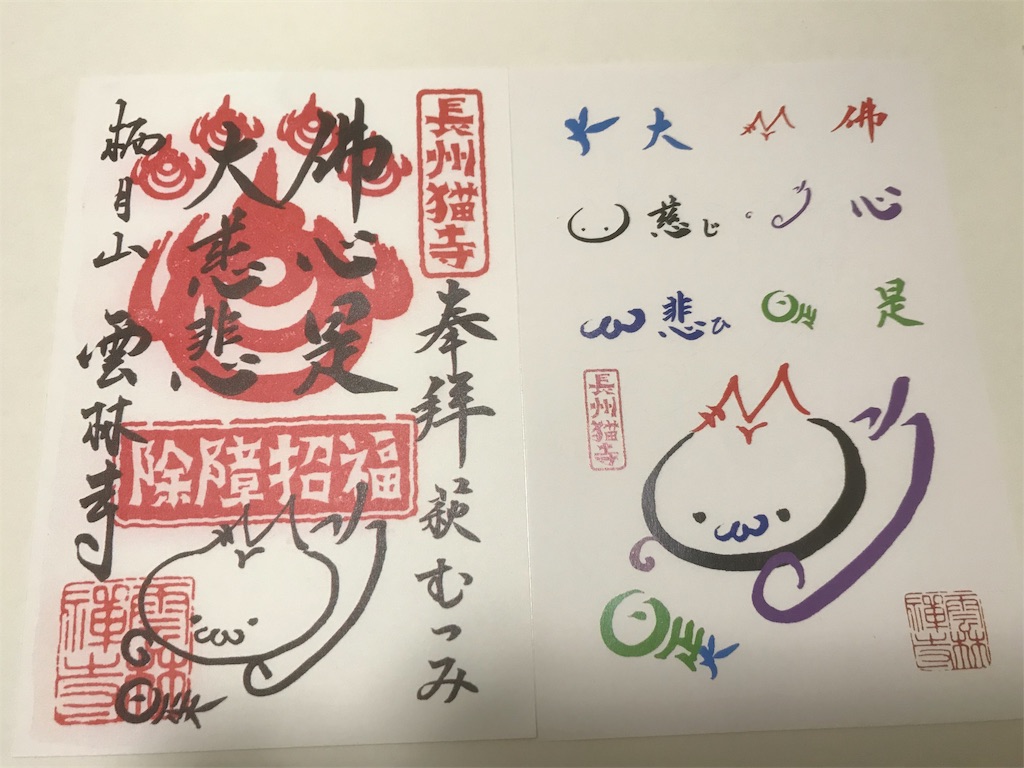 長州猫寺
奉拝 萩むつみ
佛心是
大慈悲
除障招福
栖月山 雲林寺
雲林禅寺
佛心是
大慈じ悲ひ
長州猫寺
雲林禅寺